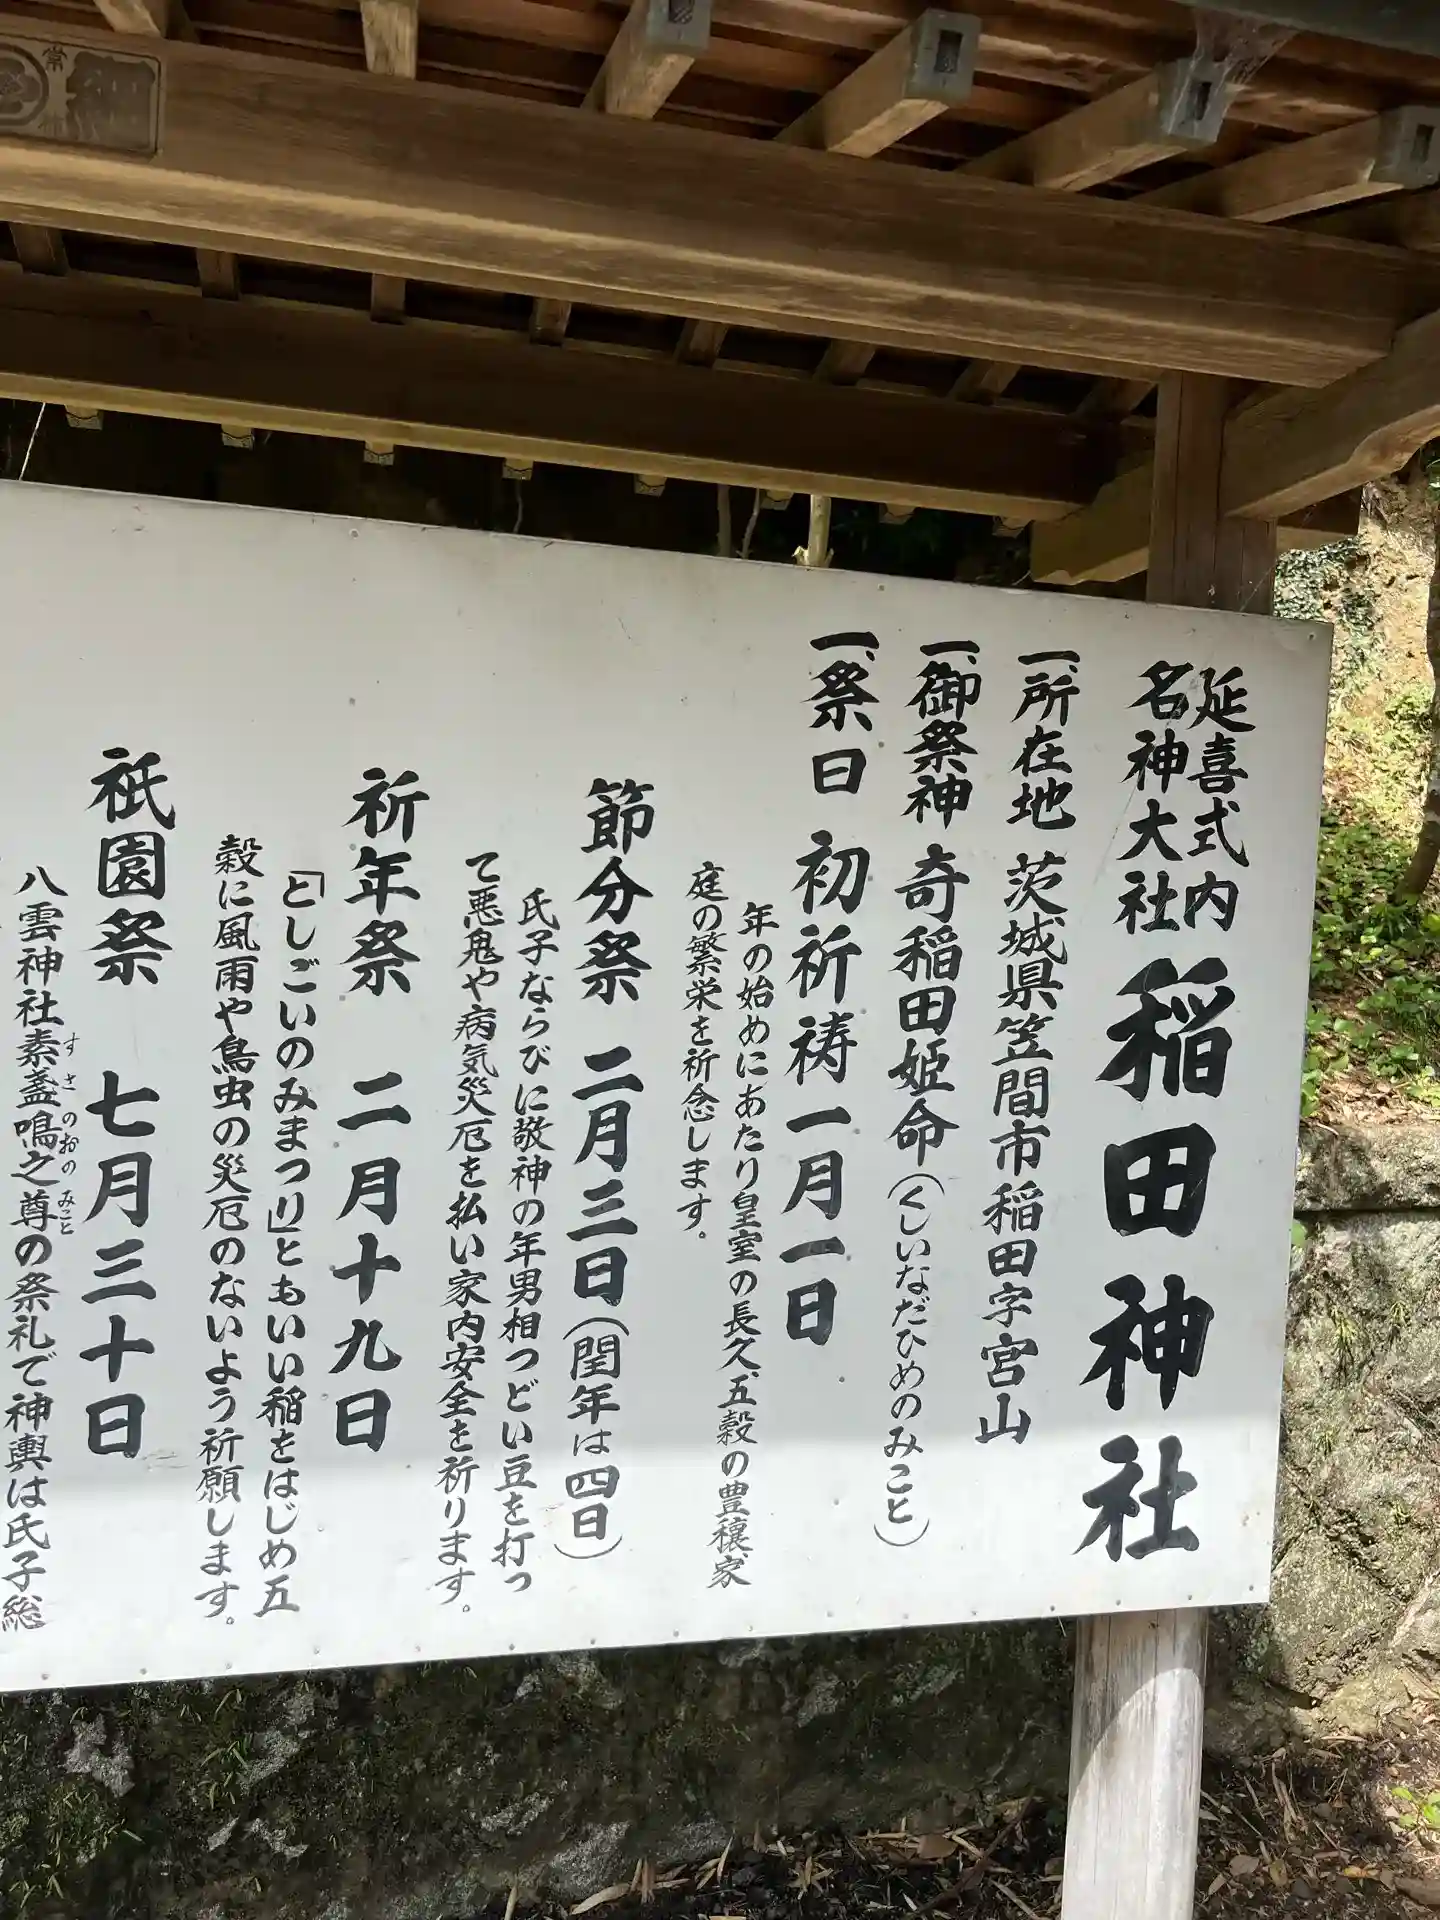 延喜式内
名神大社
稲田神社
一、所在地 茨城県笠間市稲田字宮山
一、御祭神 奇稲田姫命(くしいなだひめのみこと)
一、祭日 初祈祷 一月一日
年の始めにあたり皇室の長久、五穀の豊穣、家
庭の繁栄を祈念します。
節分祭 二月三日(閏年は四日)
氏子ならびに敬神の年男相つどい豆を打っ
て悪鬼や病気災厄を払い家内安全を祈ります。
祈年祭 二月十九日
「としごいのみまつり」ともいい稲をはじめ五
穀に風雨や鳥虫の災厄のないよう祈願します。
祇園祭 七月三十日
すさのおのみこと
八雲神社素盞鳴之尊の祭礼で神輿は氏子総